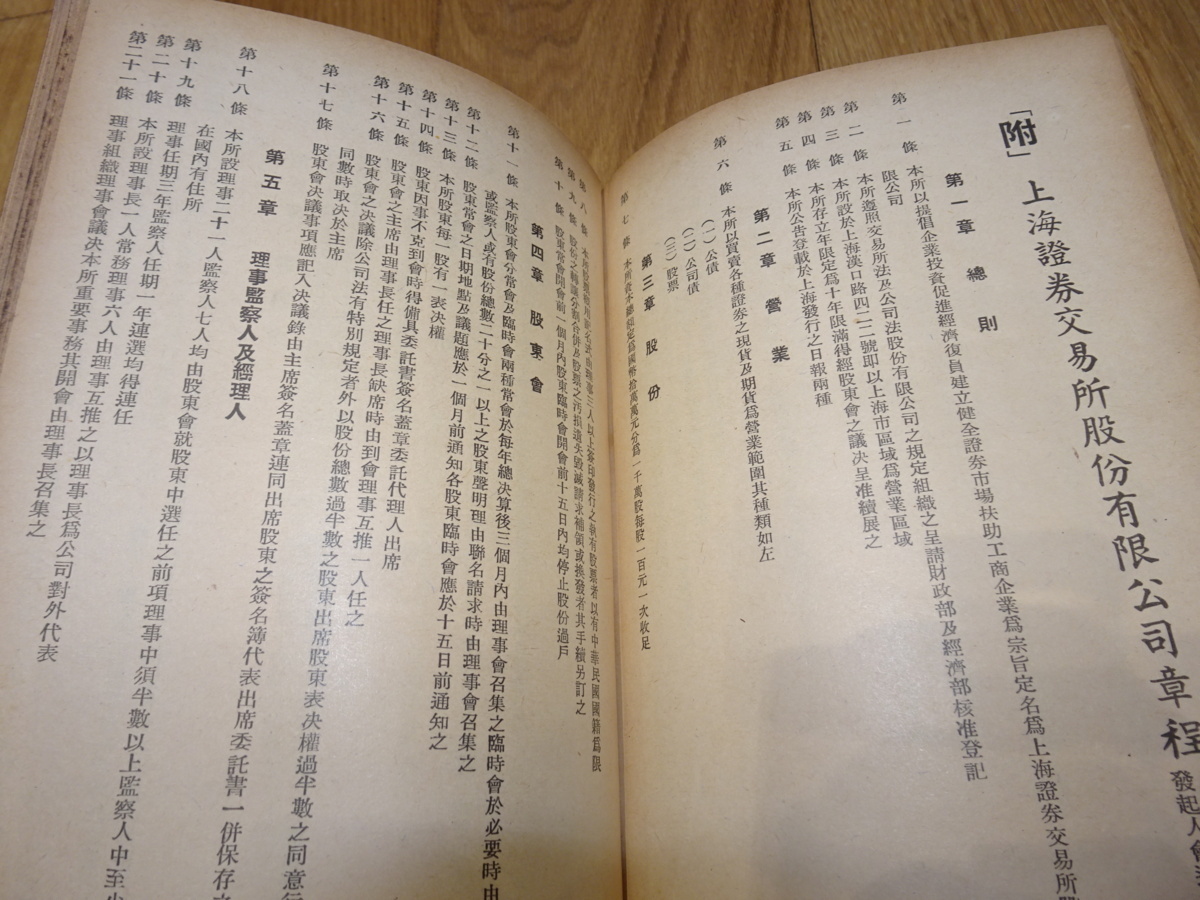 「附」上海證券交易所股份有限公司章程 發起人會
第一章 總則
第一條 本所以提倡企業投資促進經濟復員建立健全證券市場扶助工商企業爲宗旨定名爲上海證券交易所股
限公司
第二條 本所遵照交易所法及公司法股份有限公司之規定組織之呈請財政部及經濟部核准登記
第三條 本所設於上海漢口路四二二號即以上海市區域爲營業區域
第四條 本所存立年限定爲十年限滿得經股東會之議決呈准續展之
第五條 本所公告登載於上海發行之日報兩種
第二章 營業
第六條 本所以買賣各種證券之現貨及期貨爲營業範圍其種類如左
(一)公債
(二)公司債
(三)股票
第三章 股份
第七條 本所資本總額定爲國幣拾萬萬元分爲一千萬股每股一百元一次收足
第八條 本所股票概用記名式由理事三人以上簽印發行之執有股票者以有中華民國國籍爲限
第九條 股份之轉讓分割合併及股票之污損遺失毀滅請求補領或換發者其手續另訂之
第十條 股東常會開會前一個月內股東臨時會開會前十五日內均停止股份過戶
第四章 股東會
第十一條 本所股東會分常會及臨時會兩種常會於每年總決算後三個月內由理事會召集之臨時會於必要時由
或監察人或有股份總數二十分之一以上之股東聲明理由聯名請求時由理事會召集之
第十二條 股東常會之日期地點及議題應於一個月前通知各股東臨時會應於十五日前通知之
第十三條 本所股東每一股有一表決權
第十四條 股東因事不克到會時得備具委託書簽名蓋章委託代理人出席
第十五條 股東會之主席由理事長任之理事長缺席時由到會理事互推一人任之
第十六條 股東會之決議除公司法有特別規定者外以股份總數過半數之股東出席股東表決權過半數之同意行
同數時取決於主席
第十七條 股東會決議事項應記入決議錄由主席簽名蓋章連同出席股東之簽名簿代表出席委託書一併保存
第五章 理事監察人及經理人
第十八條 本所設理事二十一人監察人七人均由股東會就股東中選任之前項理事中須半數以上監察人中至少
在國內有住所
第十九條 理事任期三年監察人任期一年連選均得連任
第二十條 本所設理事長一人常務理事六人由理事互推之以理事長爲公司對外代表
第二十一條 理事組織理事會議決本所重要事務其開會由理事長召集之